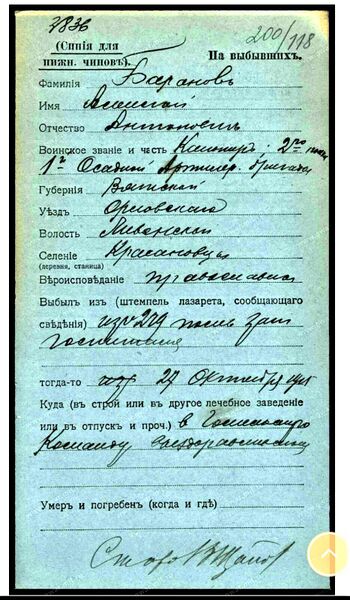 3836
200/118
(Синія для нижн. чиновъ).
На выбывшихъ.
Фамилія Барановъ
Имя Алексей
Отчество Антоновъ
Воинское званіе и часть Канониръ 2го
1й Осадной Артиллер. бригады
Губернія Вятской
Уѣздъ Орловскаго
Волость
Селеніе
(деревня, станица)
Вѣроисповѣданіе православный
Выбылъ изъ (штемпель лазарета, сообщающаго
свѣдѣнія) изъ 209 полев зап
госпиталя
тогда-то 27 Октября
Куда (въ строй или въ другое лечебное заведеніе
или въ отпускъ и проч.) в
Команду выздоравливающ
Умеръ и погребенъ (когда и гдѣ)